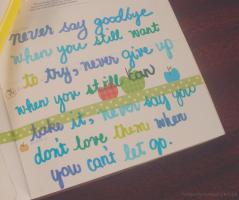 never say goodbye
when you still want
to try, never give up
when you still can
take it, never say you
don't love them when
you can't let go.